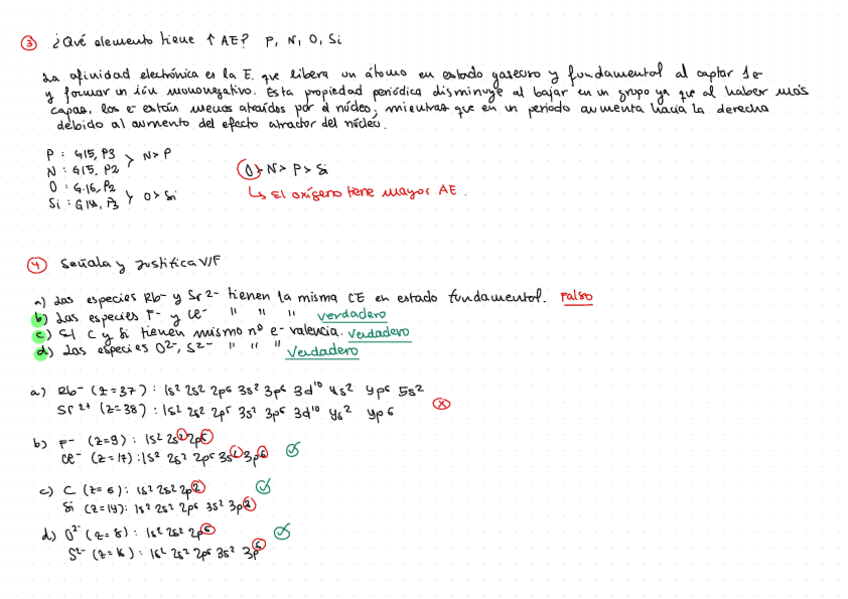 ③ ¿Qué elemento tiene ↑ AE? P, N, O, Si
La afinidad electrónica es la E. que libera un átomo en estado gaseoso y fundamental al captar 1e-
y formar un ión mononegativo. Esta propiedad periódica disminuye al bajar en un grupo ya que al haber más
capas, los e- están menos atraídos por el núcleo, mientras que en un periodo aumenta hacia la derecha
debido al aumento del efecto atractor del núcleo.
P : G15, P3
N : G15, P2
> N > P
O : G.16, P2
Si : G14, P3
> O > Si
O > N > P > Si
↳ El oxígeno tiene mayor AE.
④ Señala y justifica V/F
a) Las especies Rb- y Sr 2- tienen la misma CE en estado fundamental. Falso
b) Las especies F- y Cl- " " " verdadero
c) El C y Si tienen mismo nº e- valencia. Verdadero
d) Las especies O2-, S2- " " " Verdadero
a) Rb- (z=37) : 1s² 2s² 2p⁶ 3s² 3p⁶ 3d¹⁰ 4s² 4p⁶ 5s²
Sr 2+ (z=38) : 1s² 2s² 2p⁶ 3s² 3p⁶ 3d¹⁰ 4s² 4p6
b) F- (z=9) : 1s² 2s² 2p⁶
Cl- (z=17) : 1s² 2s² 2p⁶ 3s² 3p⁶
c) C (z=6) : 1s² 2s² 2p²
Si (z=14) : 1s² 2s² 2p⁶ 3s² 3p²
d) O²- (z=8) : 1s² 2s² 2p⁶
S²- (z=16) : 1s² 2s² 2p⁶ 3s² 3p⁶